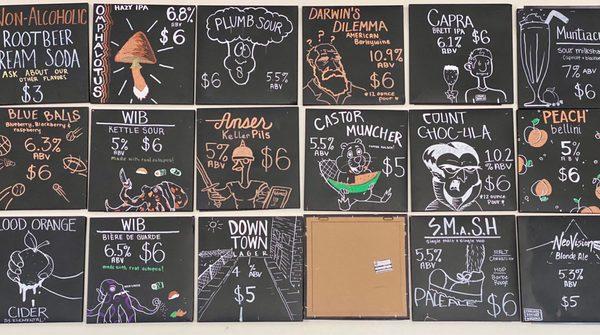 NON-ALCOHOLIC
ROOTBEER
CREAM SODA
ASK ABOUT OUR
OTHER FLAVORS
$3
OMPHALOTUS
HAZY IPA
6.8%
ABV
$6
PLUMB SOUR
$6
5.5%
ABV
DARWIN'S
DILEMMA
AMERICAN
Barleywine
10.9%
ABV
$6
*12 OUNCE
POUR*
CAPRA
BRETT IPA
6.1%
ABV
$6
Muntiacus
Sour milkshake
7%
ABV
$6
BLUE BALLS
Blueberry, Blackberry &
raspberry
6.3%
ABV
$6
WIB
KETTLE SOUR
5%
ABV
$6
Made with real octopus!
Anser
Keller Pils
5%
ABV
$6
CASTOR
MUNCHER
5.5%
ABV
$5
COUNT
CHOC-ULA
10.2
%
ABV
$6
*12 OUNCE
POUR*
PEACH
bellini
5%
ABV
$6
BLOOD ORANGE
CIDER
WIB
BIÈRE DE GUARDE
6.5%
ABV
$6
made with real octopus!
DOWN
TOWN
LAGER
4%
ABV
$5
S.M.A.S.H
Single Malt & Single Hop
5.5%
ABV
MALT
HOP
PALE ALE
$6
NeoVision
Blonde Ale
5.3%
ABV
$5